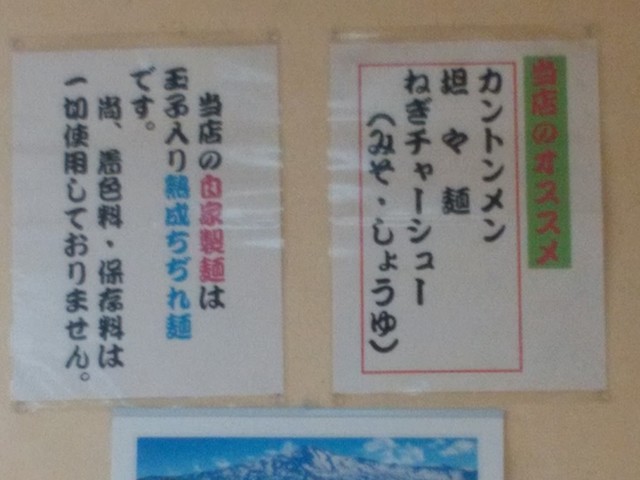 当店のオススメ
カントンメン
坦々麺
ねぎチャーシュー
(みそ・しょうゆ)
当店の自家製麺は
玉子入り熟成ちぢれ麺
です。
尚、着色料・保存料は
一切使用しておりません。